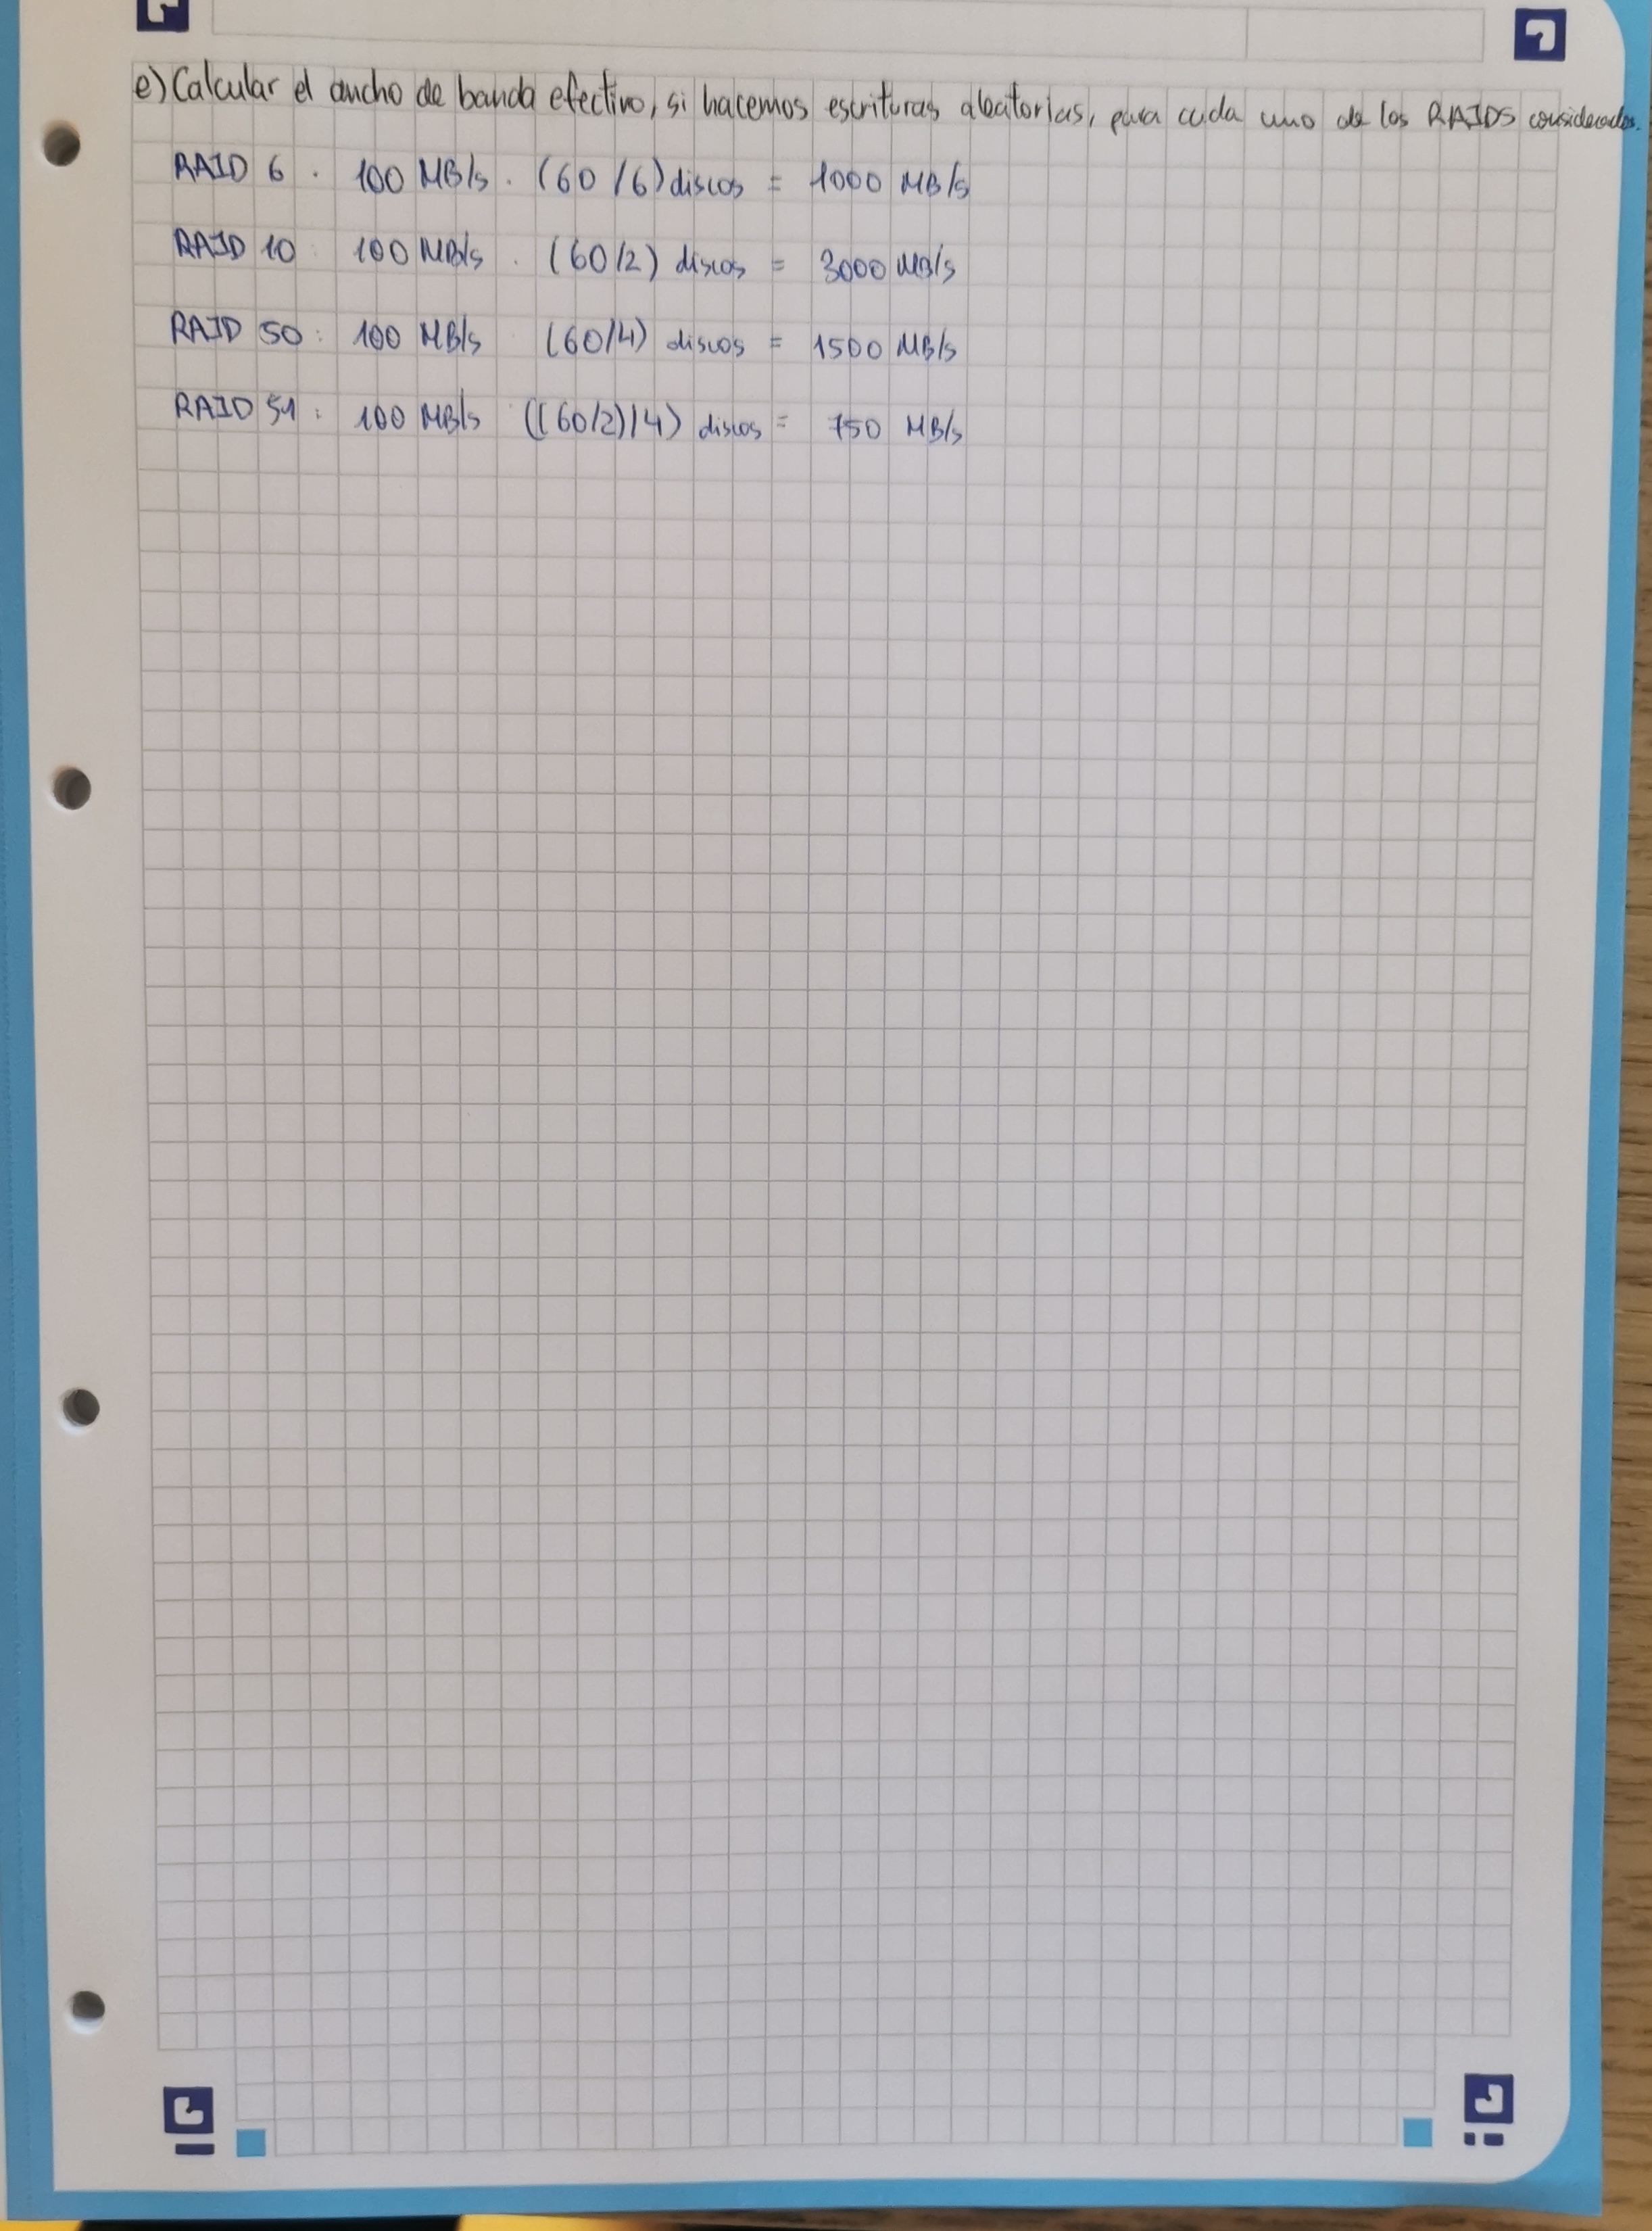 e) Calcular el ancho de banda efectivo, si hacemos escrituras aleatorias, para cada uno de los RAIDS considerados.
RAID 6 . 100 MB/s . (60/6) discos = 1000 MB/s
RAID 10 : 100 MB/s . (60/2) discos = 3000 MB/s
RAID 50 : 100 MB/s (60/4) discos = 1500 MB/s
RAID 51 : 100 MB/s ((60/2)/4) discos = 750 MB/s